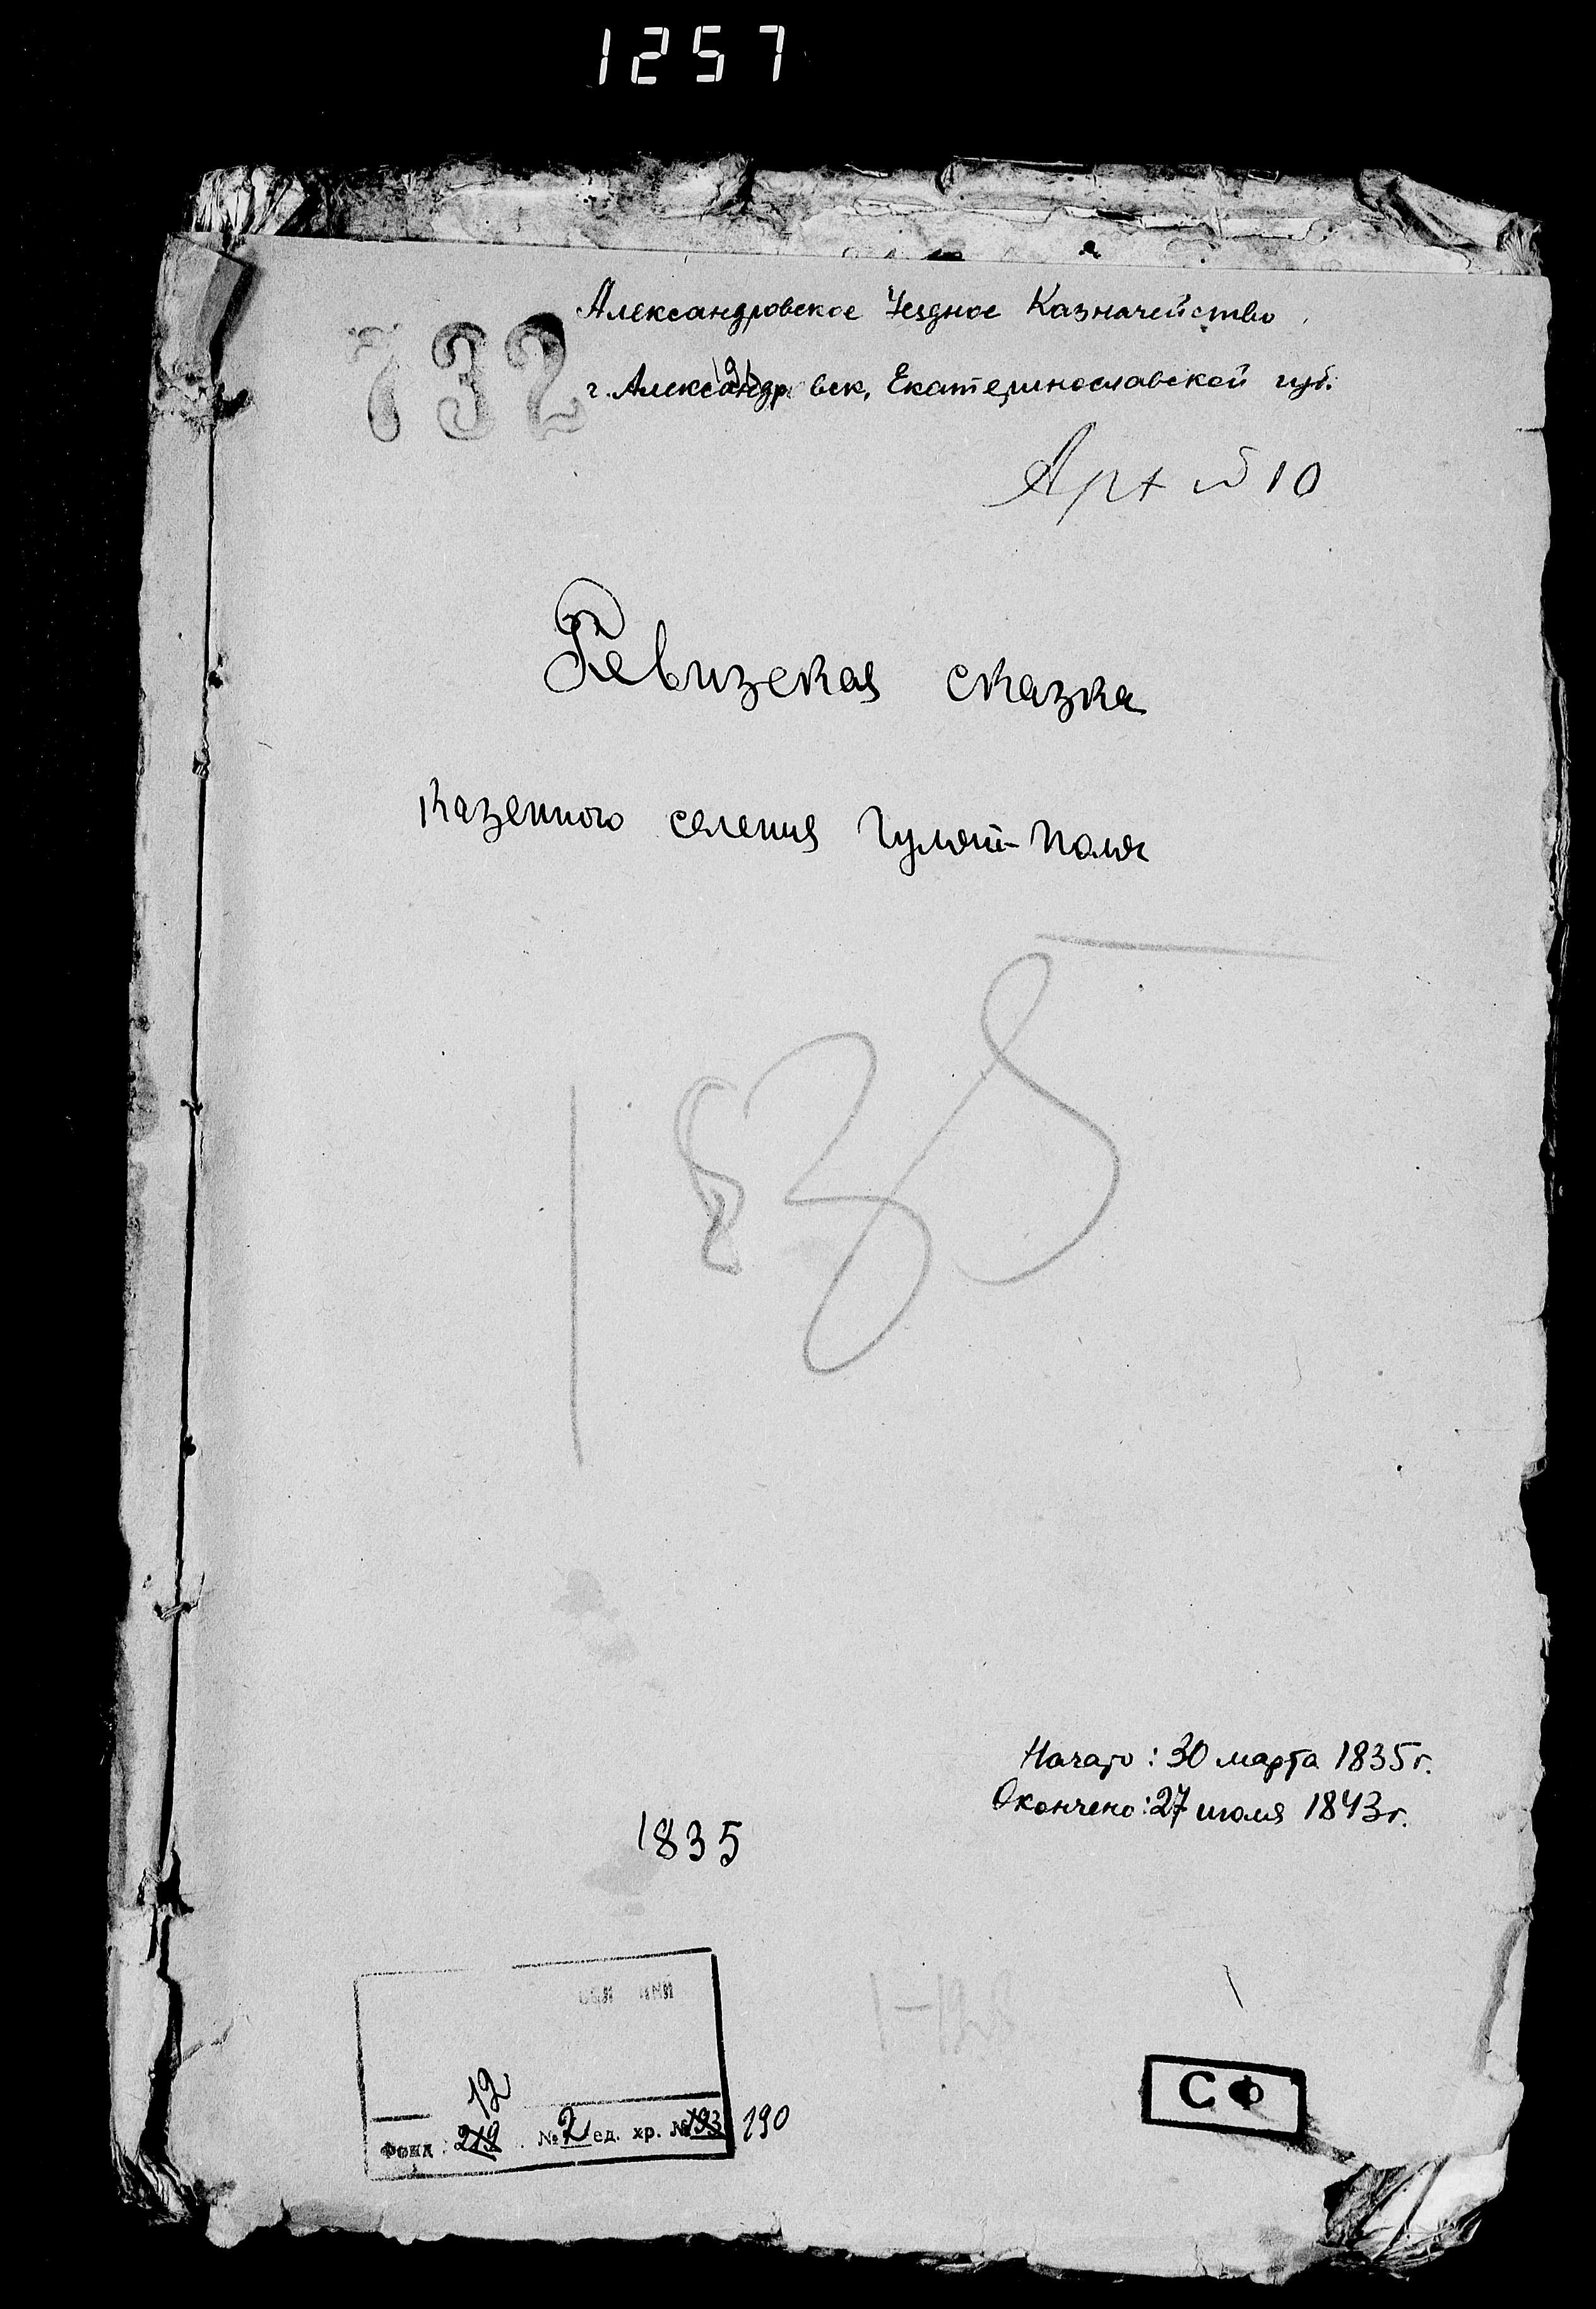 1257
732
Александровское Уездное Казначейство
г. Александровск, Екатеринославской губ.
Арх № 10
Ревизская сказка
казенного селения Гуляй-Поля
1835
Начато: 30 марта 1835 г.
Окончено: 27 июля 1843 г.
1835
12
Фонд 219 № 2 ед. хр. № 193 190
СФ